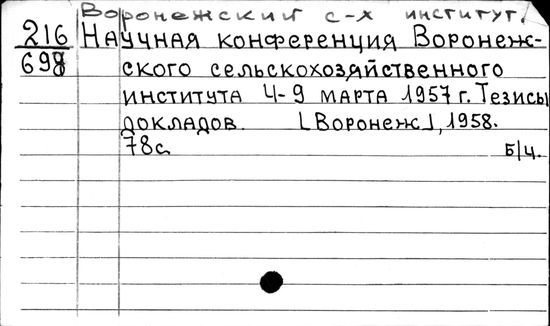 Воронежский с-х институт.
216 Научная конференция Воронеж-
698 ского сельскохозяйственного
института 4-9 марта 1957 г. Тезисы
докладов. [Воронеж], 1958.
78с. б/ц.